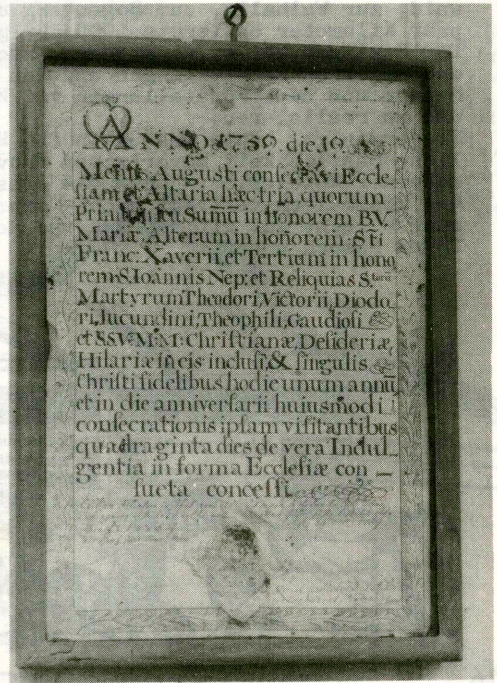 ANNO 1759. die 19.
Mensis Augusti consecravi Eccle_
siam et Altaria hæc tria quorum
Sum̄ū in Honorem BV.
Mariæ. Alterum in honorem Sti
Franc: Xaverii, et Tertium in hono
rem S. Ioannis Nep: et Reliquias S.
Martyrum Theodori, Victorii, Diodo_
ri, Jucundini, Theophili, Gaudiosi
et SSV. M.M: Christianæ, Desideriæ,
Hilariæ in eis inclusi, & singulis
Christi fidelibus hodie unum annū
et in die anniversarii huiusmodi
consecrationis ipsam visitantibus
quadraginta dies de vera Indul_
gentia in forma Ecclesiæ con_
sueta concessi.